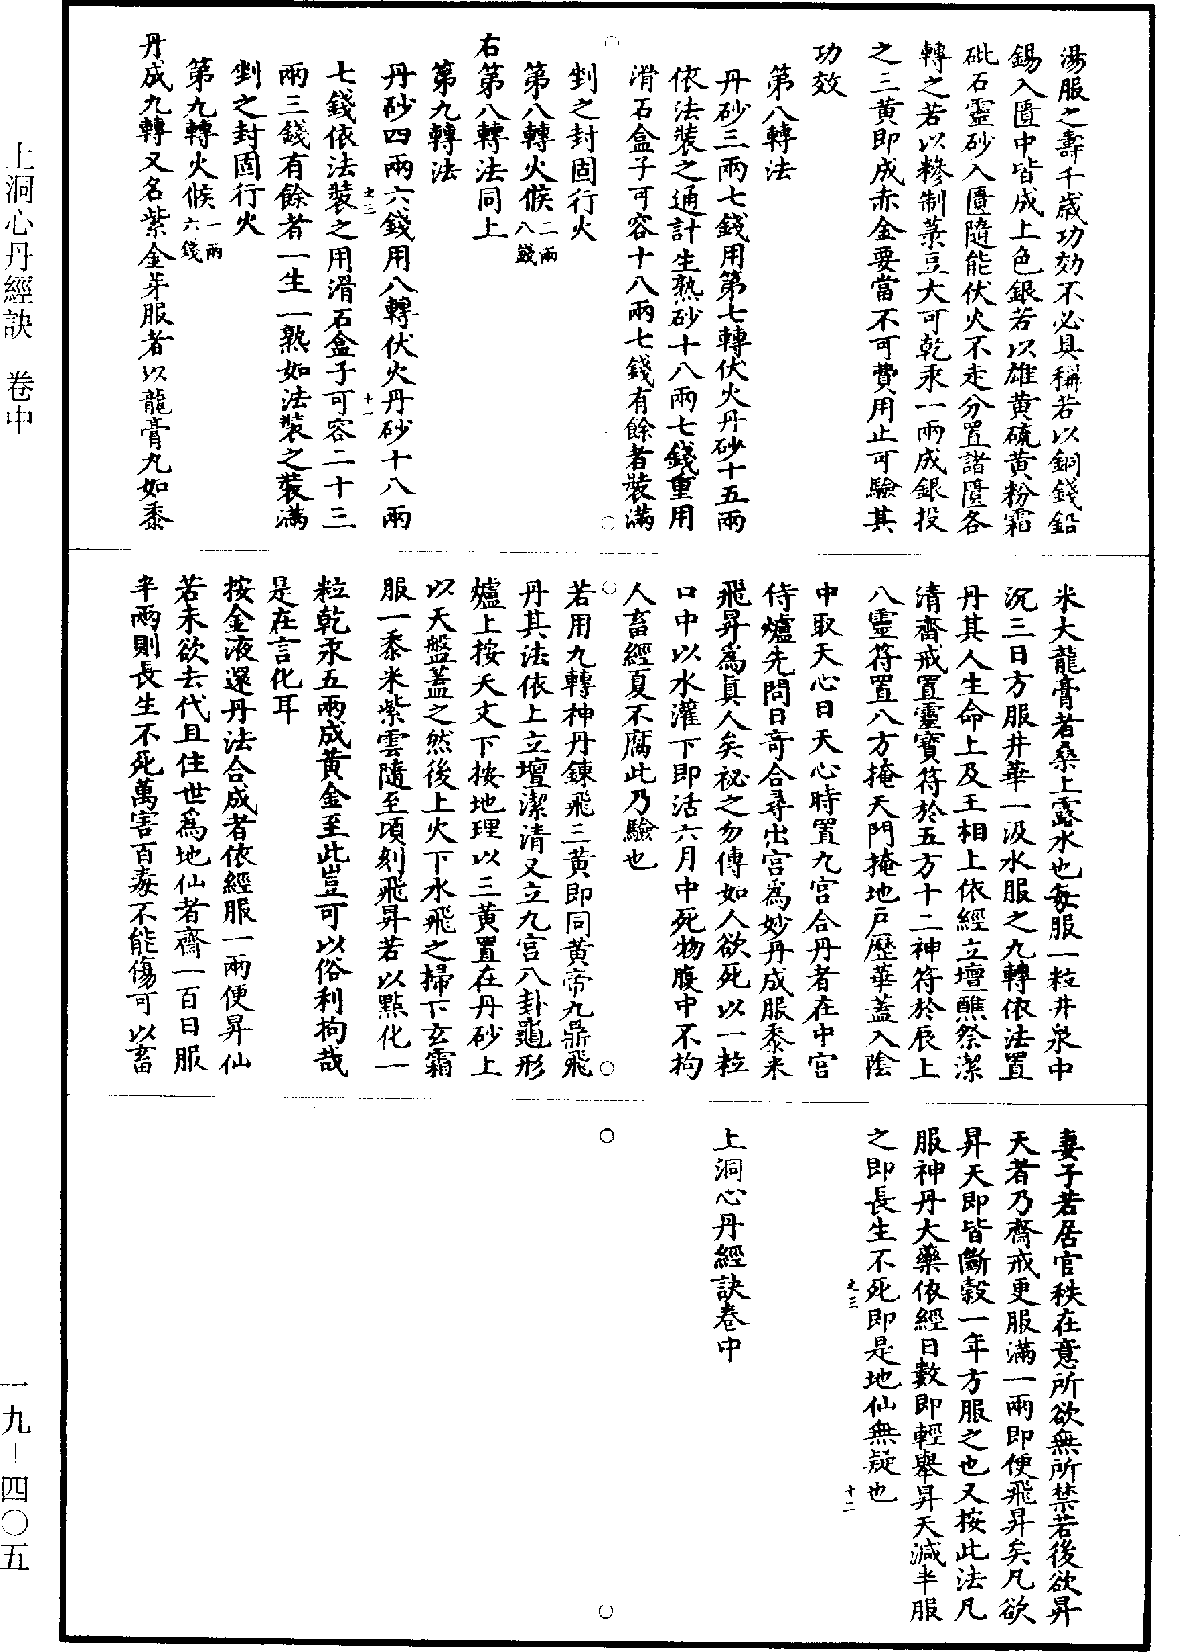 湯服之壽千歲功効不必具稱若以銅錢鉛
錫入匱中皆成上色銀若以雄黃硫黃粉霜
砒石靈砂入匱隨能伏火不走分置諸匱各
轉之若以糝制菉豆大可乾汞一兩成銀投
之三黃即成赤金要當不可費用止可驗其
功效
第八轉法
丹砂三兩七錢用第七轉伏火丹砂十五兩
依法裝之通計生熟砂十八兩七錢重用
滑石盒子可容十八兩七錢有餘者裝滿
剉之封固行火
第八轉火候二兩八錢
右第八轉法同上
第九轉法
丹砂四兩六錢用八轉伏火丹砂十八兩
史三 十一
七錢依法裝之用滑石盒子可容二十三
兩三錢有餘者一生一熟如法裝之裝滿
剉之封固行火
第九轉火候一兩六錢
丹成九轉又名紫金芽服者以龍膏丸如黍
米大龍膏者桑上露水也每服一粒井泉中
沉三日方服井華一汲水服之九轉依法置
丹其人生命上及王相上依經立壇醮祭潔
清齋戒置靈寶符於五方十二神符於辰上
八靈符置八方掩天門掩地戶歷華蓋入陰
中取天心日天心時置九宮合丹者在中宮
侍爐先問日奇合尋出宮為妙丹成服黍米
飛昇為真人矣祕之勿傳如人欲死以一粒
口中以水灌下即活六月中死物腹中不拘
人畜經夏不腐此乃驗也
若用九轉神丹鍊飛三黃即同黃帝九鼎飛
丹其法依上立壇潔清又立九宮八卦竈形
爐上按天文下按地理以三黃置在丹砂上
以天盤蓋之然後上火下水飛之掃下玄霜
服一黍米紫雲隨至頃刻飛昇若以點化一
粒乾汞五兩成黃金至此豈可以俗利拘哉
是在言化耳
按金液還丹法合成者依經服一兩便昇仙
若未欲去代且住世為地仙者齋一百日服
半兩則長生不死萬害百毒不能傷可以畜
妻子若居官秩在意所欲無所禁若後欲昇
天者乃齋戒更服滿一兩即便飛昇矣凡欲
昇天即皆斷穀一年方服之也又按此法凡
服神丹大藥依經日數即輕舉昇天減半服
之即長生不死即是地仙無疑也
史三 十二
上洞心丹經訣卷中
上洞心丹經訣 卷中
一九－四〇五